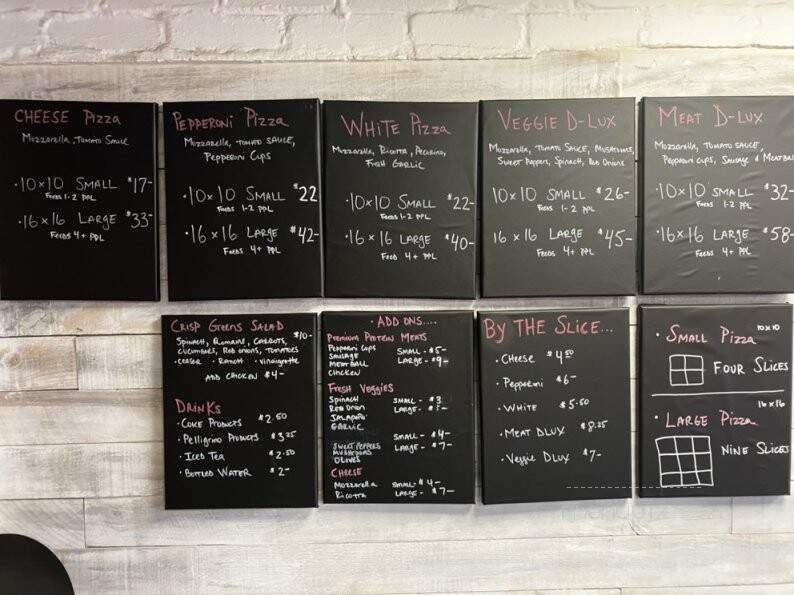 CHEESE PIZZA
Mozzarella, Tomato Sauce
• 10x10 SMALL $17-
FEEDS 1-2 PPL
• 16x16 LARGE $33-
FEEDS 4+ PPL
PEPPERONI PIZZA
MOZZARELLA, TOMATO SAUCE,
PEPPERONI CUPS
• 10x10 SMALL $22
FEEDS 1-2 PPL
• 16x16 LARGE $42-
FEEDS 4+ PPL
WHITE PIZZA
MOZZARELLA, RICOTTA, PECORINO,
FRESH GARLIC
• 10x10 SMALL $22-
FEEDS 1-2 PPL
• 16x16 LARGE $40-
FEEDS 4+ PPL
VEGGIE D-LUX
MOZZARELLA, TOMATO SAUCE, MUSHROOMS,
SWEET PEPPERS, SPINACH, RED ONIONS
10x10 SMALL $26-
FEEDS 1-2 PPL
16x16 LARGE $45-
FEEDS 4+ PPL
MEAT D-LUX
MOZZARELLA, TOMATO SAUCE,
PEPPERONI CUPS, SAUSAGE & MEATBALL
• 10x10 SMALL $32-
FEEDS 1-2 PPL
• 16x16 LARGE $58-
FEEDS 4+ PPL
CRISP GREENS SALAD
SPINACH, ROMAINE, CARROTS, $10-
CUCUMBERS, RED ONIONS, TOMATOES
- CEASER - RANCH - VINAIGRETTE
ADD CHICKEN $4-
DRINKS
• COKE PRODUCTS $2.50
• PELLIGRINO PRODUCTS $3.25
• ICED TEA $2.50
• BOTTLED WATER $2-
ADD ONS....
PREMIUM PROTEIN MEATS
PEPPERONI CUPS SMALL - $5-
SAUSAGE LARGE - $9-
MEATBALL
CHICKEN
FRESH VEGGIES
SPINACH SMALL - $3
RED ONION LARGE -
JALAPAÑO
GARLIC
SMALL - $4-
SWEET PEPPERS LARGE - $7-
MUSHROOMS
OLIVES
CHEESE
MOZZARELLA SMALL - $4-
RICOTTA LARGE - $7-
BY THE SLICE...
• CHEESE $4.50
• PEPPERONI $6-
• WHITE $5.50
• MEAT DLUX $8.25
• VEGGIE DLUX $7-
• SMALL PIZZA 10x10
FOUR SLICES
16x16
• LARGE PIZZA
NINE SLICES